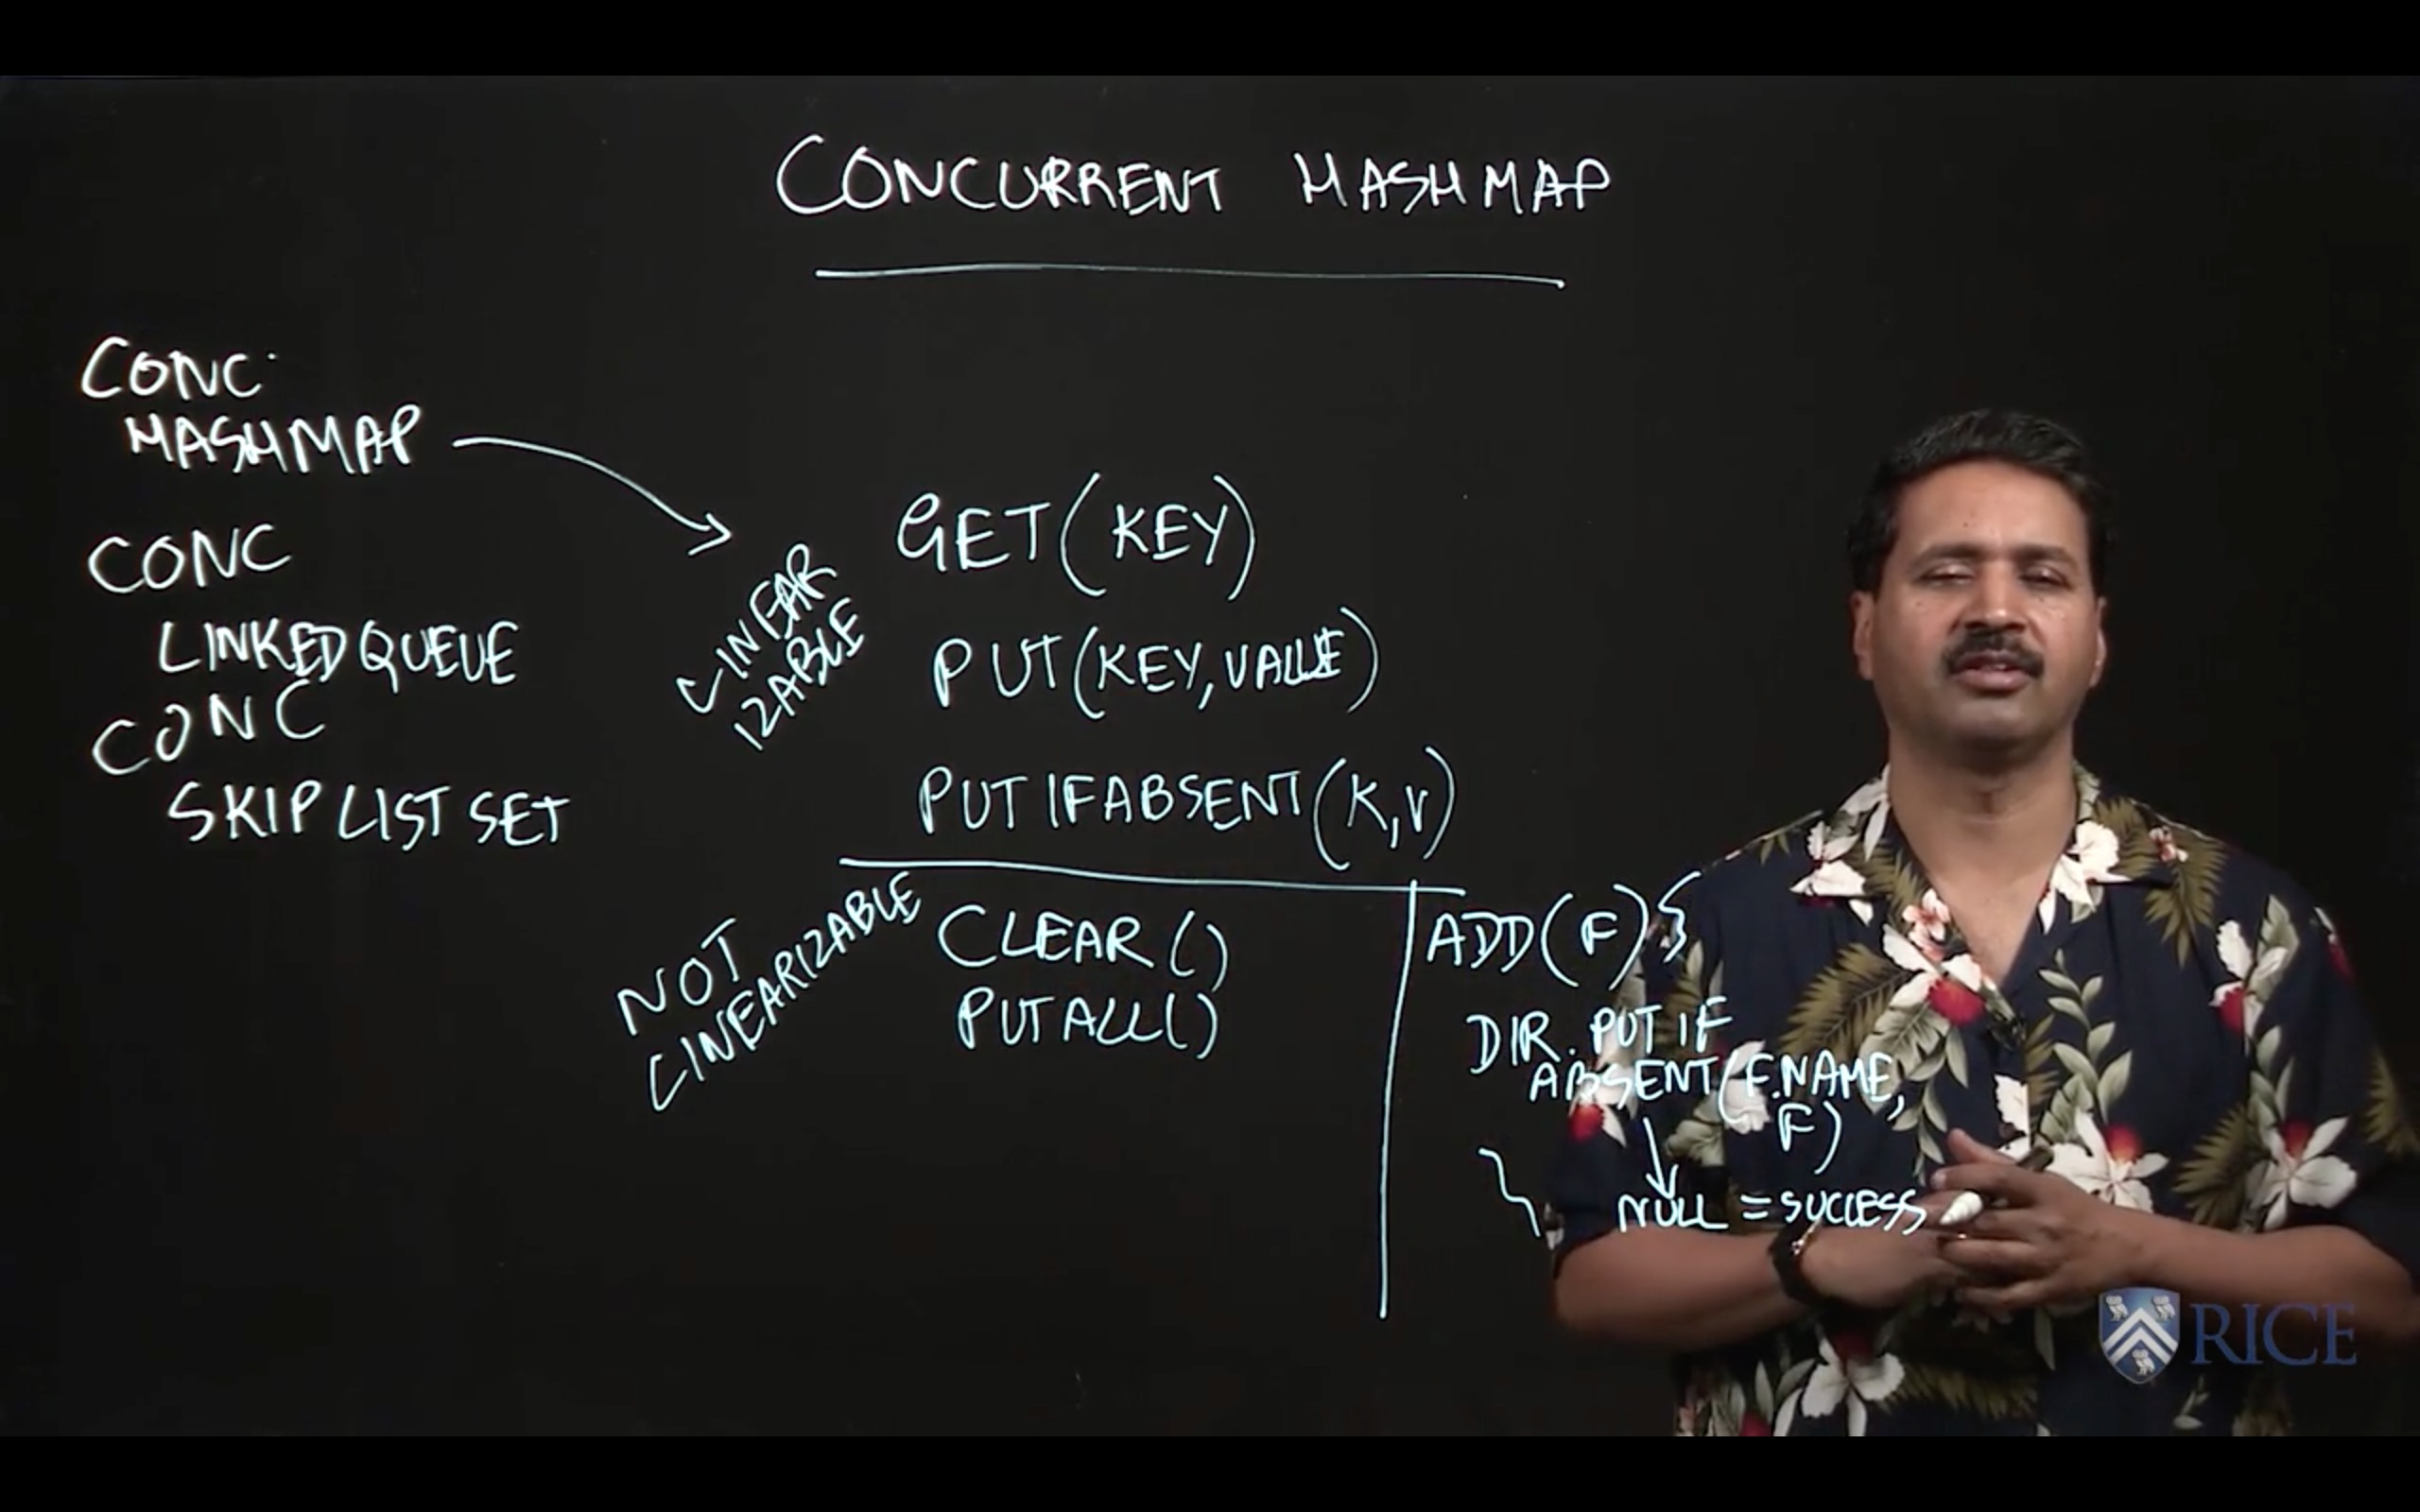 CONCURRENT HASHMAP
CONC.
HASHMAP
CONC
LINKEDQUEUE
CONC
SKIPLIST SET
LINEAR
IZABLE
GET(KEY)
PUT(KEY, VALUE)
PUTIFABSENT(K,V)
NOT
LINEARIZABLE
CLEAR()
PUTALL()
ADD(F) {
DIR. PUT IF
ABSENT(F.NAME,
F)
NULL = SUCCESS
}
RICE